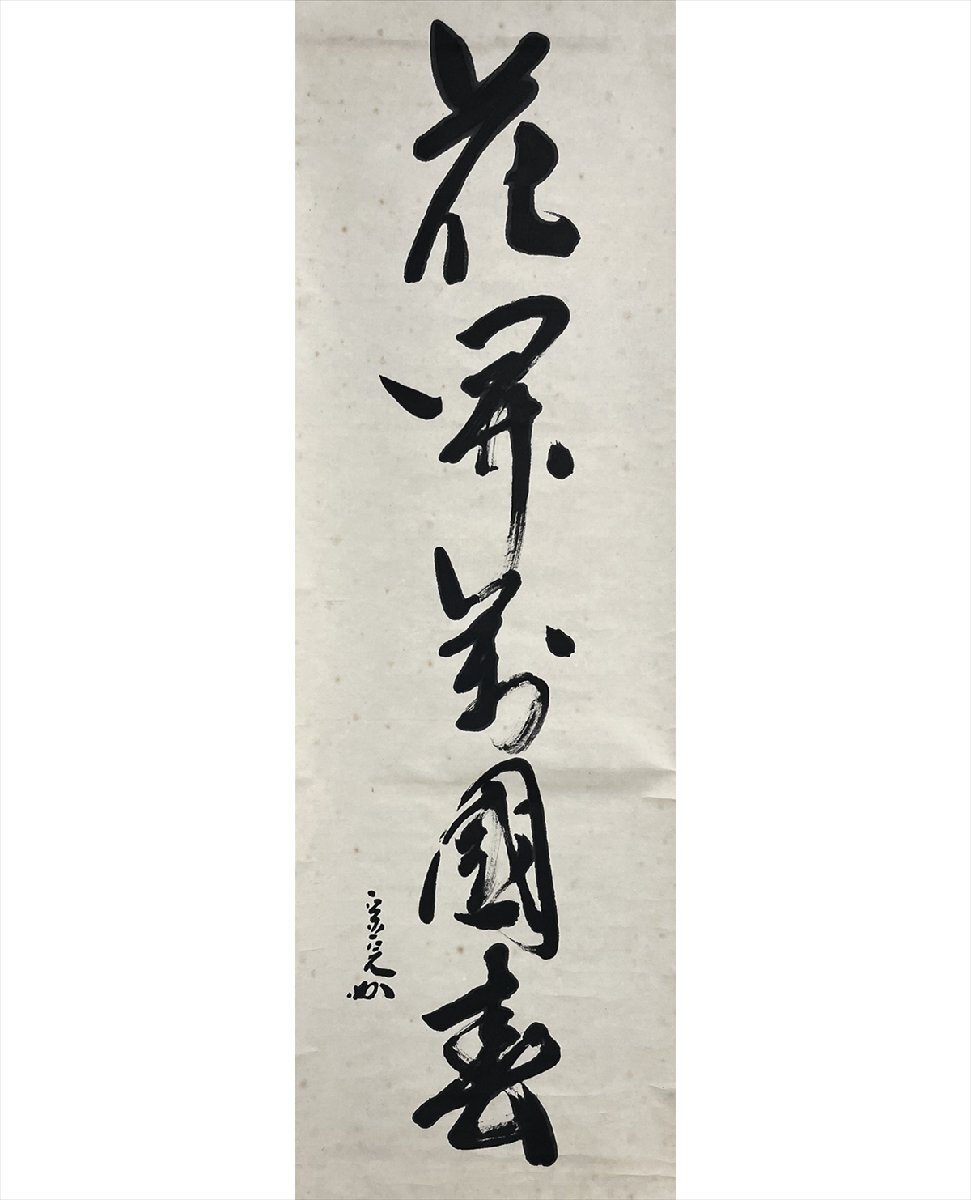 花開萬國春